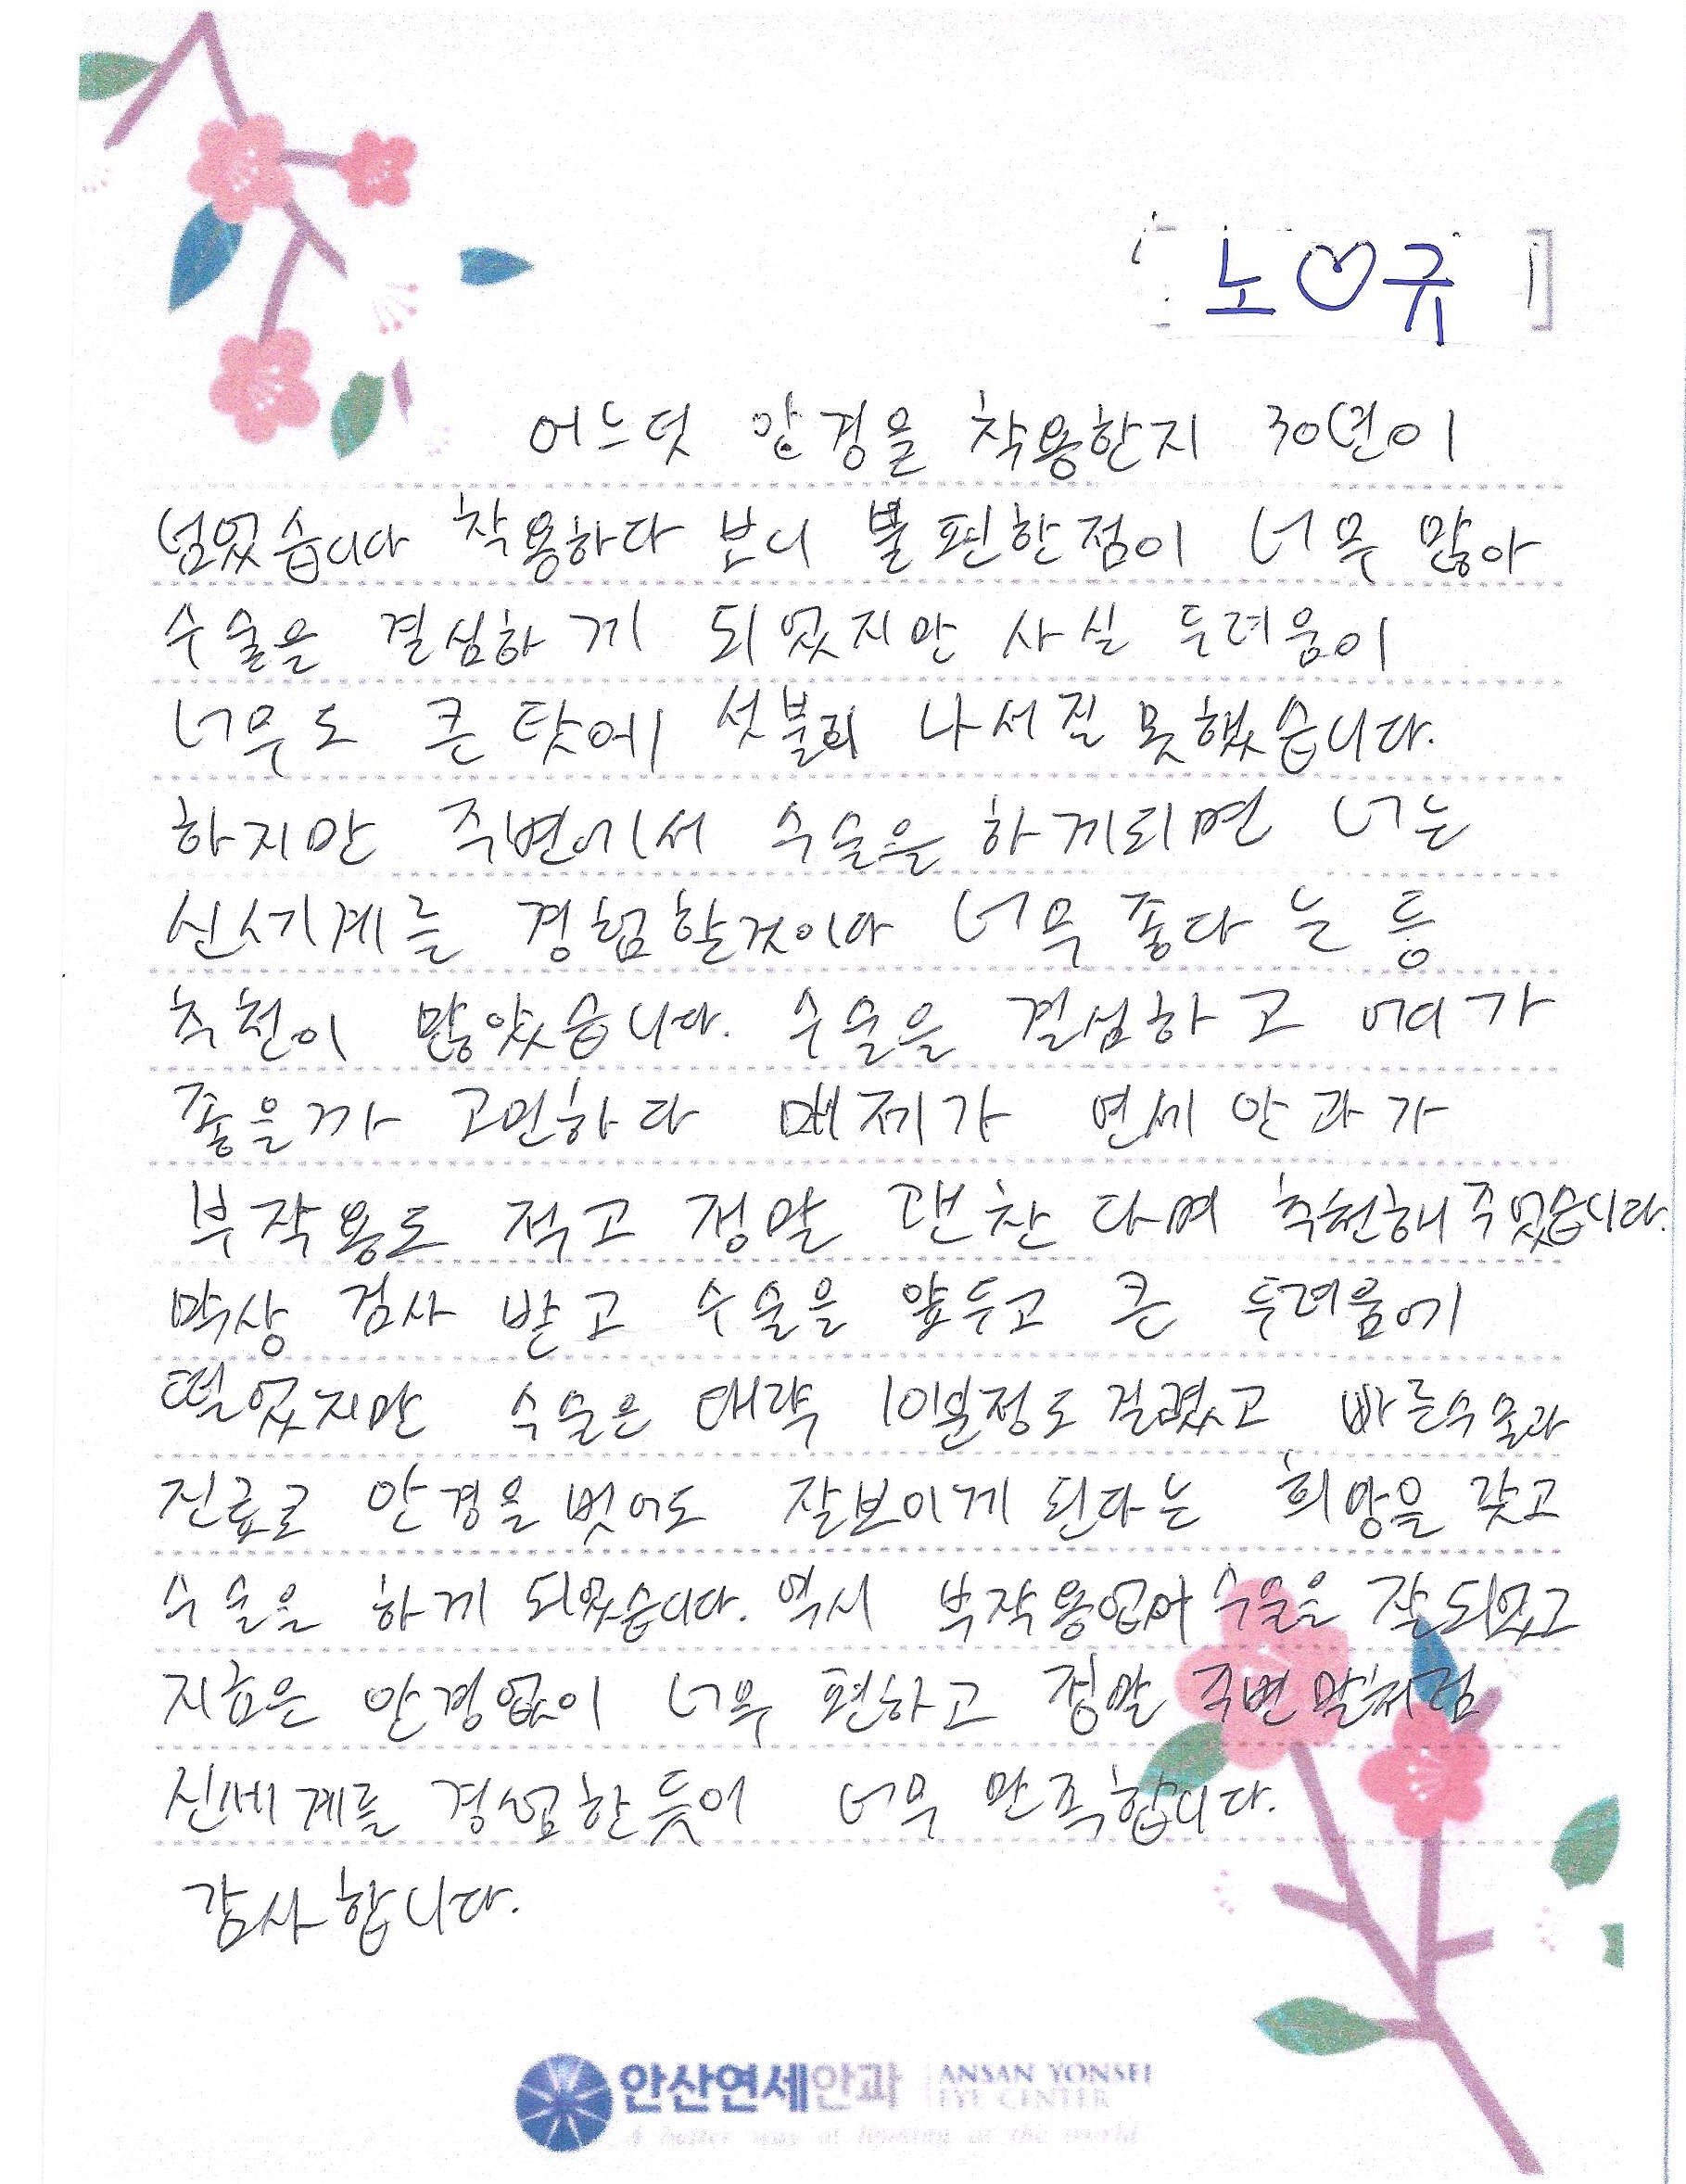 노♡규
어느덧 안경을 착용한지 30년이
넘었습니다 착용하다 보니 불편한점이 너무 많아
수술을 결심하게 되었지만 사실 두려움이
너무도 큰 탓에 섯불리 나서질 못했습니다.
하지만 주변에서 수술을 하게되면 너는
신세계를 경험할것이다 너무 좋다는 등
추천이 많았습니다. 수술을 결심하고 어디가
좋을까 고민하다 매제가 연세안과가
부작용도 적고 정말 괜찬다며 추천해주었습니다.
막상 검사 받고 수술을 앞두고 큰 두려움에
떨었지만 수술은 대략 10분정도 걸렸고 빠른수술과
진료로 안경을 벗어도 잘보이게 된다는 희망을 갖고
수술을 하게 되었습니다. 역시 부작용없이 수술은 잘되었고
지금은 안경없이 너무 편하고 정말 주변말처럼
신세계를 경험한듯이 너무 만족합니다.
감사합니다.
안산연세안과 ANSAN YONSEI
EYE CENTER
A better way of looking at the world